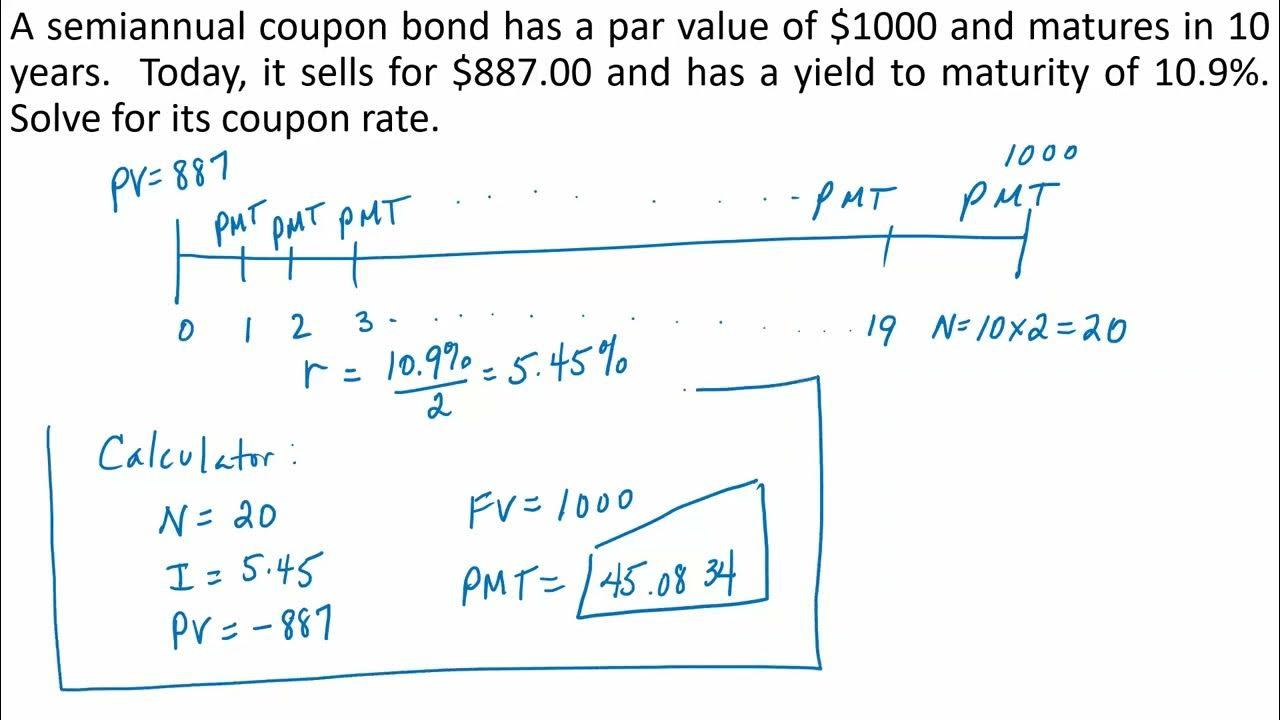 A semiannual coupon bond has a par value of $1000 and matures in 10
years. Today, it sells for $887.00 and has a yield to maturity of 10.9%.
Solve for its coupon rate.
1000
PV=887
PMT PMT PMT . . . . . . . - PMT PMT
0 1 2 3 - . . . . . . . . . . . . 19 N=10×2=20
r = 10.9%/2 = 5.45%
Calculator:
N= 20 FV= 1000
I = 5.45 PMT= 45.0834
PV= -887